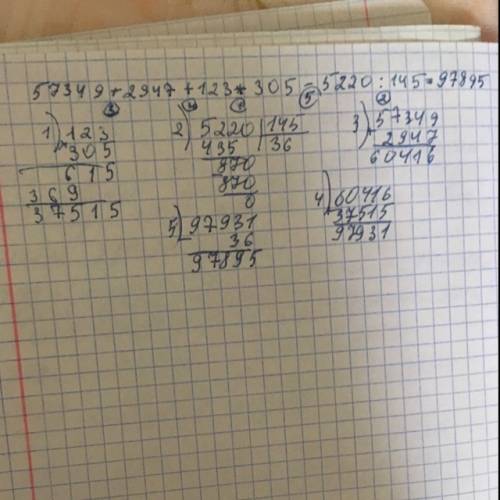 57349+2947+123*305-5220:145=97895
3 4 1 5 2
1) 123
305
615
369
37515
2) 5220 145
435 36
870
870
0
3) 57349
2947
60416
4) 60416
37515
97931
5) 97931
36
97895